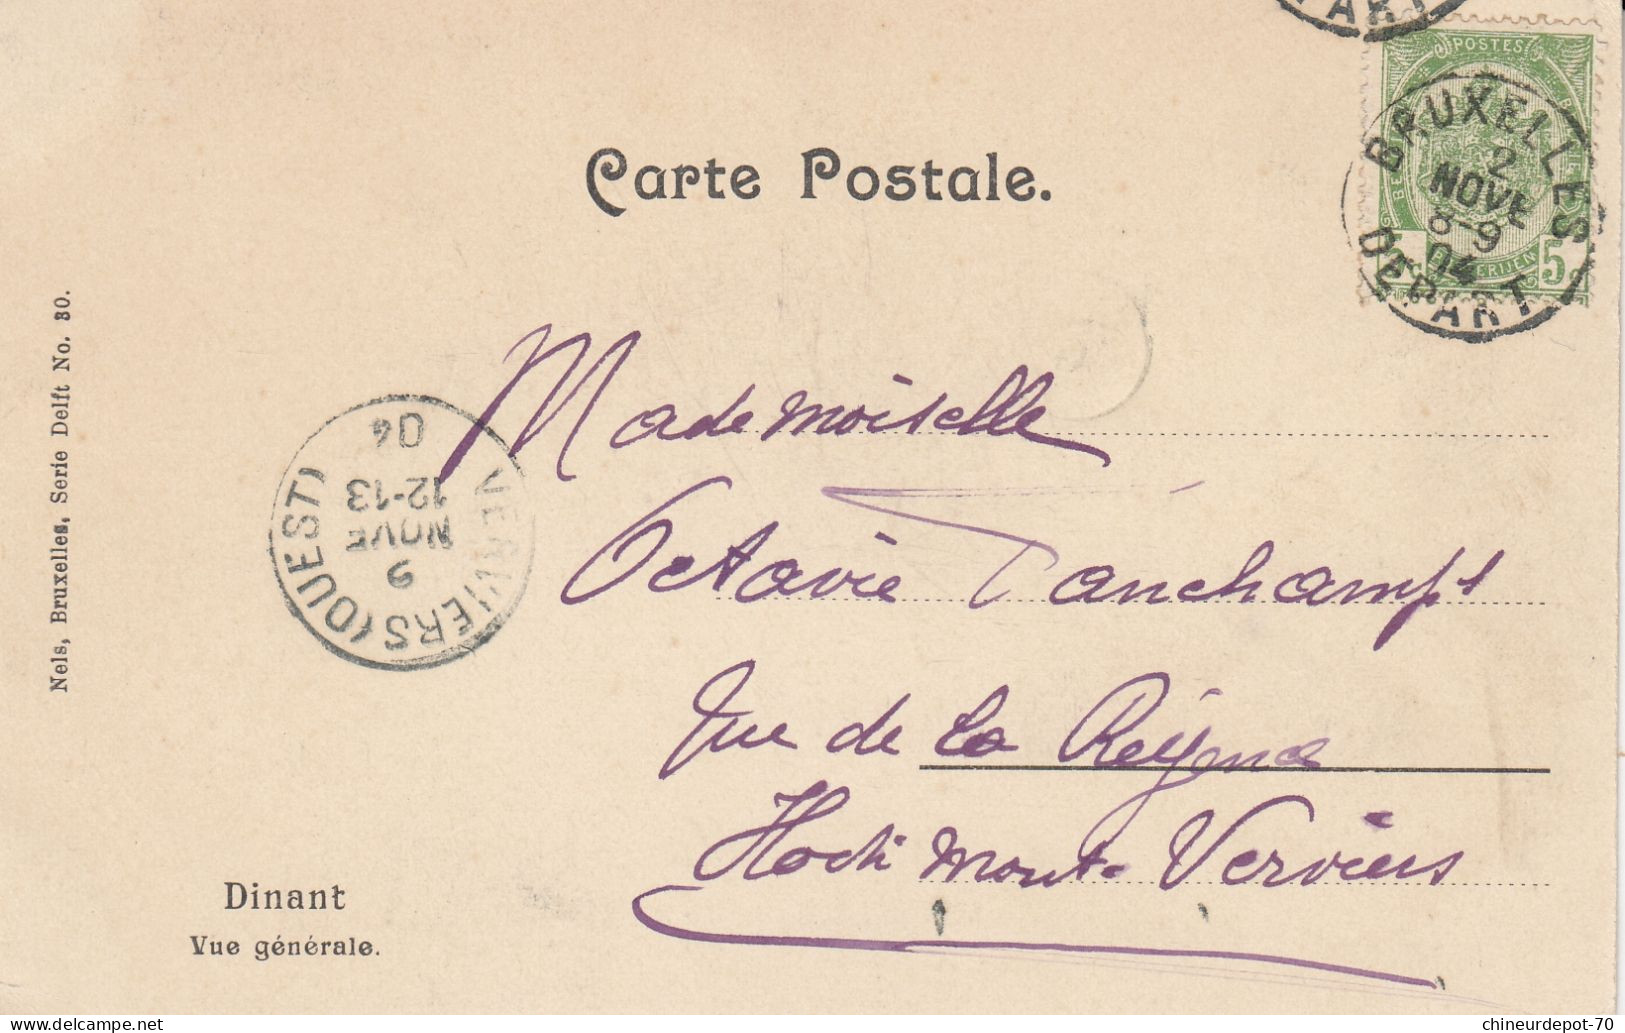 PART
POSTES
BRUXELLES
2
NOVE
8-9
04
DEPART
5
Carte Postale.
Nels, Bruxelles, Serie Delft No. 80.
VERVIERS (OUEST)
NOVE
12-13
04
Mademoiselle
Octavie Tanchamps
rue de la Régence
Hodimont-Verviers
Dinant
Vue générale.
chineurdepot-70